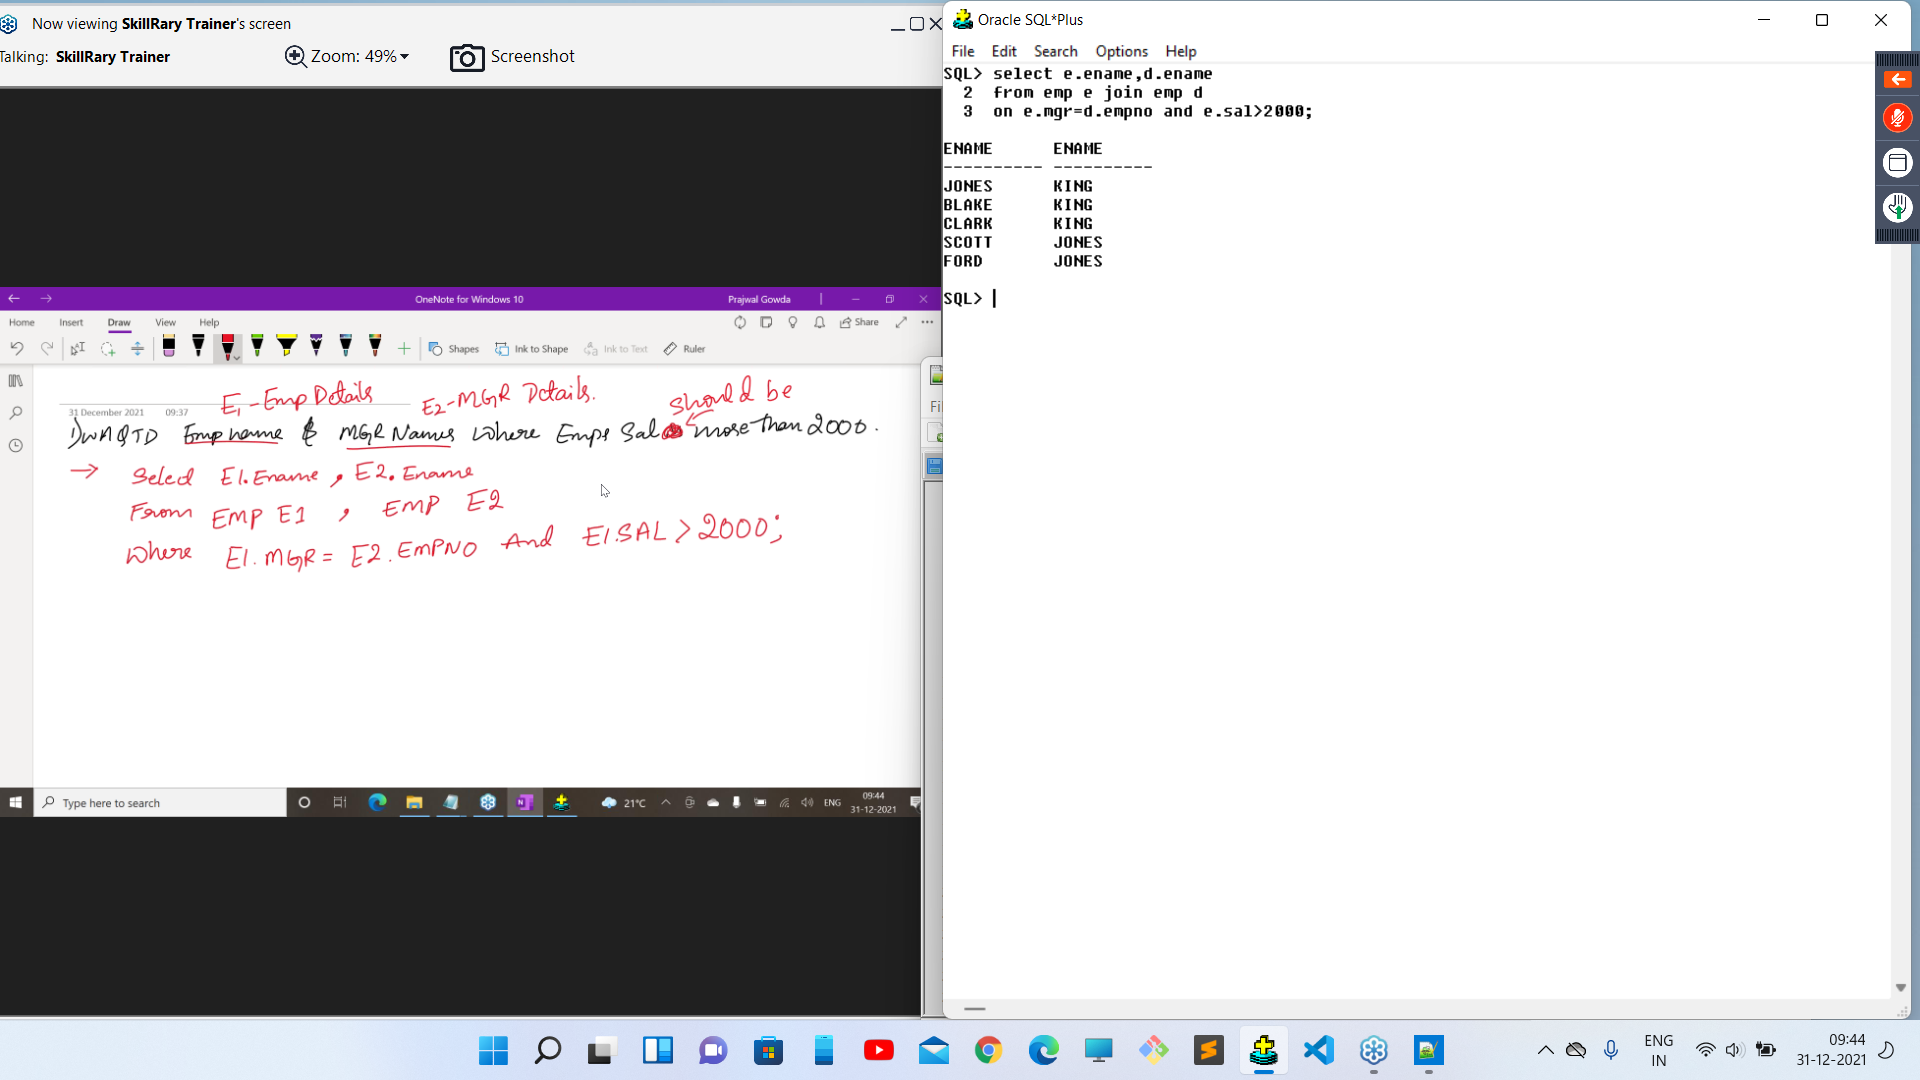 Now viewing SkillRary Trainer's screen
Talking: SkillRary Trainer
Zoom: 49%
Screenshot
OneNote for Windows 10
Prajwal Gowda
Home Insert Draw View Help
Share
Shapes
Ink to Shape
Ink to Text
Ruler
E1 - Emp Details E2 - MGR Details.
should be
31 December 2021 09:37
1) WAQTD Emp name & MGR Names where Emps Sal more than 2000.
→ Select E1.Ename, E2.Ename
From EMP E1, EMP E2
where E1.MGR = E2.EMPNO And E1.SAL > 2000;
Type here to search
21°C
ENG
09:44
31-12-2021
Fi
Oracle SQL*Plus
File Edit Search Options Help
SQL> select e.ename,d.ename
2 from emp e join emp d
3 on e.mgr=d.empno and e.sal>2000;
ENAME ENAME
---------- ----------
JONES KING
BLAKE KING
CLARK KING
SCOTT JONES
FORD JONES
SQL>
ENG
IN
09:44
31-12-2021